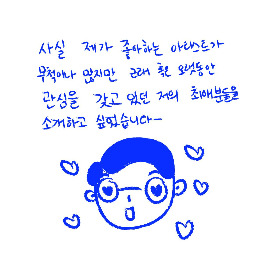 사실 제가 좋아하는 아티스트가
무척이나 많지만 그래도 오랫동안
관심을 갖고 있던 저의 최애분들을
소개하고 싶었습니다-